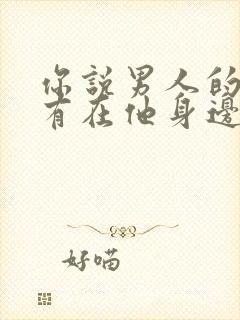 你說男人的
有在他身邊
好喵